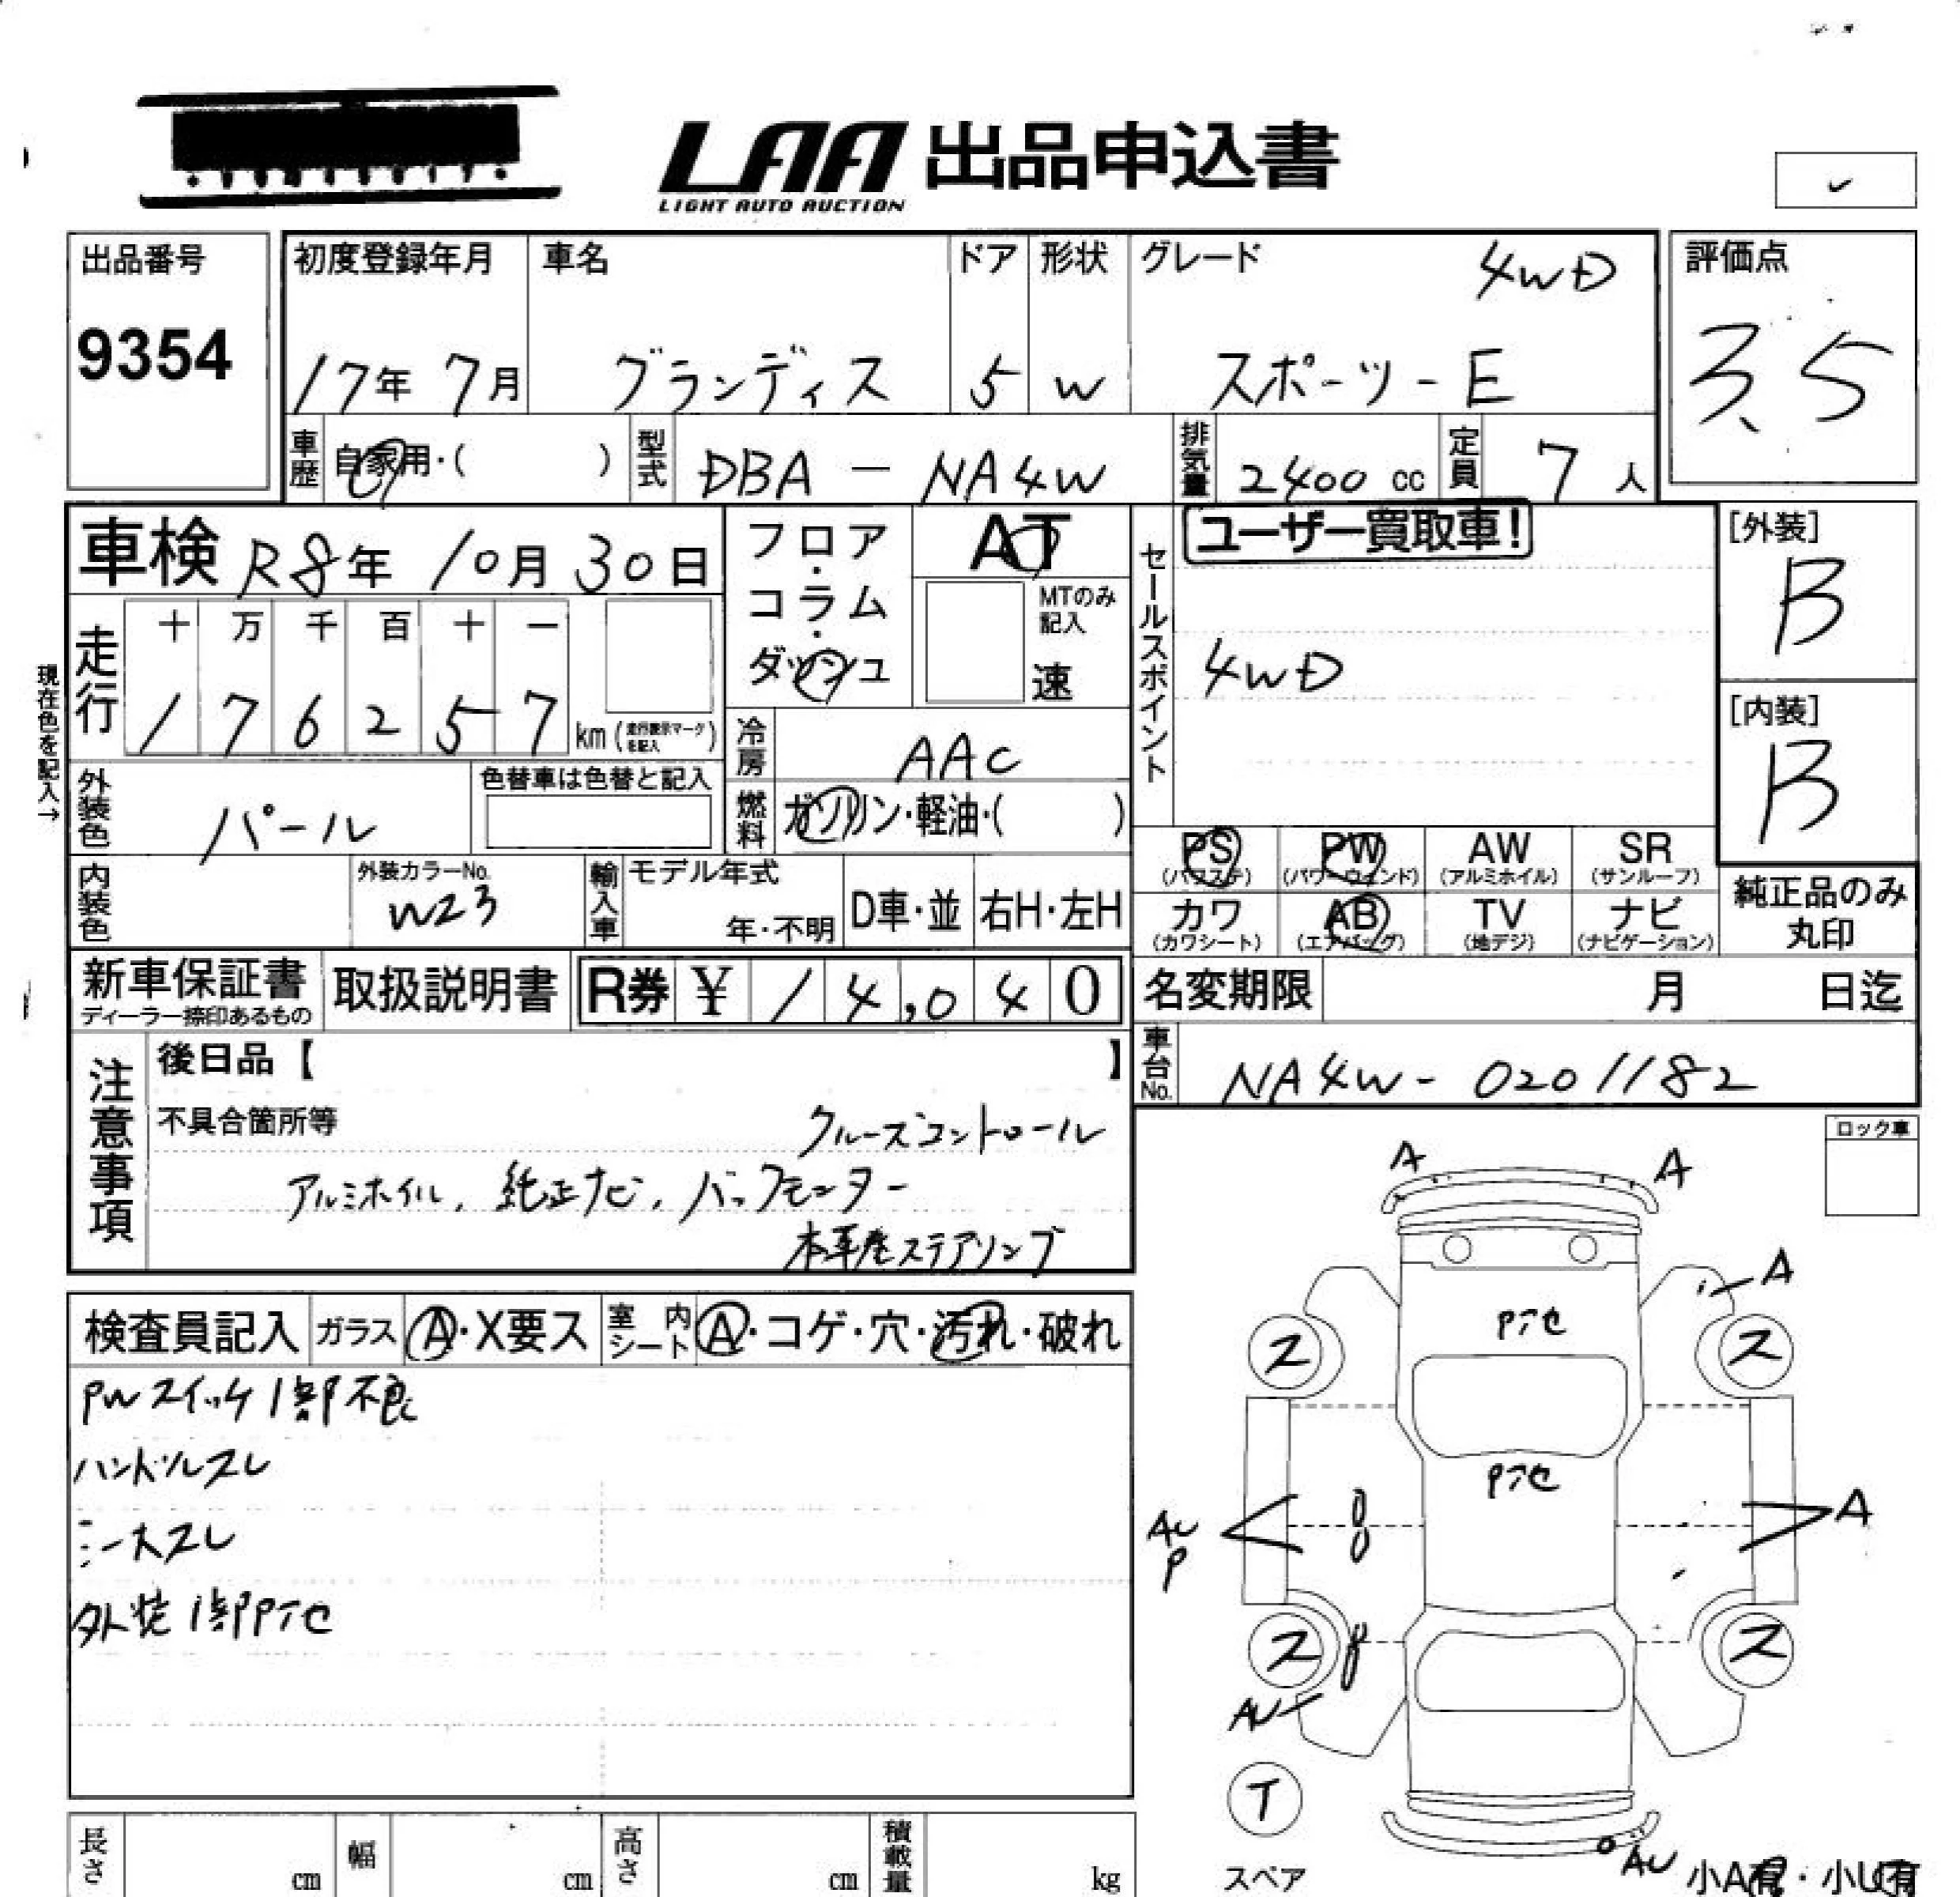 LAA 出品申込書
LIGHT AUTO AUCTION
出品番号
9354
初度登録年月
17年 7月
車名
グランディス
ドア
5
形状
W
グレード
4WD
スポーツ-E
評価点
3.5
車歴
自家用・( )
型式
DBA - NA4W
排気量
2400 cc
定員
7 人
車検 R8年 10月 30日
フロア・コラム・ダッシュ
AT
MTのみ記入
速
セールスポイント
ユーザー買取車!
4WD
[外装]
B
[内装]
B
現在色を記入→
走行
十 万 千 百 十 一
1 7 6 2 5 7 km (走行表示マークを記入)
冷房
AAC
燃料
ガソリン・軽油・( )
外装色
パール
色替車は色替と記入
内装色
外装カラーNo.
W23
輸入車
モデル年式
年・不明
D車・並
右H・左H
PS (パワステ)
PW (パワーウィンド)
AW (アルミホイル)
SR (サンルーフ)
カワ (カワシート)
AB (エアバッグ)
TV (地デジ)
ナビ (ナビゲーション)
純正品のみ丸印
新車保証書
ディーラー捺印あるもの
取扱説明書
R券 ¥ 14,040
名変期限 月 日迄
車台No.
NA4W- 0201182
注意事項
後日品【 】
不具合箇所等
クルーズコントロール
アルミホイル, 純正ナビ, バックモニター
本革巻ステアリング
ロック車
検査員記入
ガラス A・X要ス
室内シート A・コゲ・穴・汚れ・破れ
PWスイッチ1部不良
ハンドルスレ
シートスレ
外装1部Pアセ
A
A
A
Pアセ
ス
ス
Pアセ
AU
P
A
ス
ス
AU
T
スペア
AU
小A有・小U有
長さ cm
幅 cm
高さ cm
積載量 kg